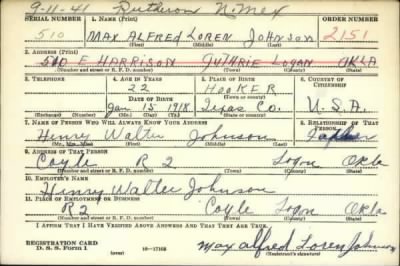 9-11-41 N. Mex
SERIAL NUMBER 1. Name (Print) ORDER NUMBER
510 MAX ALFRED LOREN JOHNSON 2151
(First) (Middle) (Last)
2. Address (Print)
510 E HARRISON GUTHRIE LOGAN OKLA
(Number and street or R. F. D. number) (Town) (County) (State)
3. Telephone 4. Age in Years 5. Place of Birth 6. Country of Citizenship
22 HOOKER
Date of Birth (Town or county)
Jan 15 1918 Texas Co. U.S.A.
(Exchange) (Number) (Mo.) (Day) (Yr.) (State or country)
7. Name of Person Who Will Always Know Your Address 8. Relationship of That Person
Henry Walter Johnson Father
(Mr., Mrs., Miss) (First) (Middle) (Last)
9. Address of That Person
Coyle R 2 Logn Okla
(Number and street or R. F. D. number) (Town) (County) (State)
10. Employer's Name
Henry Walter Johnson
11. Place of Employment or Business
R2 Coyle Logn Okla
(Number and street or R. F. D. number) (Town) (County) (State)
I Affirm That I Have Verified Above Answers and That They Are True.
Registration Card
D. S. S. Form 1 (over) 16—17105 Max Alfred Loren Johnson
(Registrant's signature)